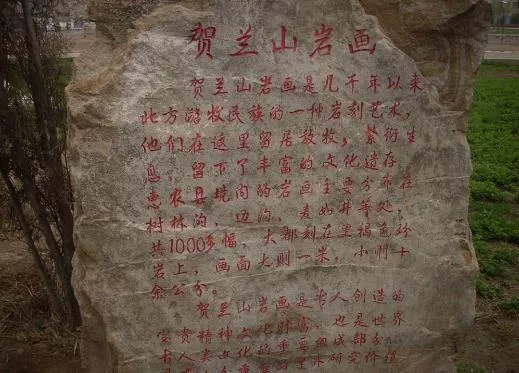 贺兰山岩画
贺兰山岩画是几千年以来
北方游牧民族的一种岩刻艺术，
他们在这里留居放牧，繁衍生
息。留下了丰富的文化遗存
惠农县境内的岩画主要分布在
树林沟，边沟，麦如井等处，
共1000多幅，大都刻在
岩上，画面大则一米，小则十
余公分。
贺兰山岩画是古人创造的
宝贵精神文化财富，也是世界
古人类文化的重要组成部分